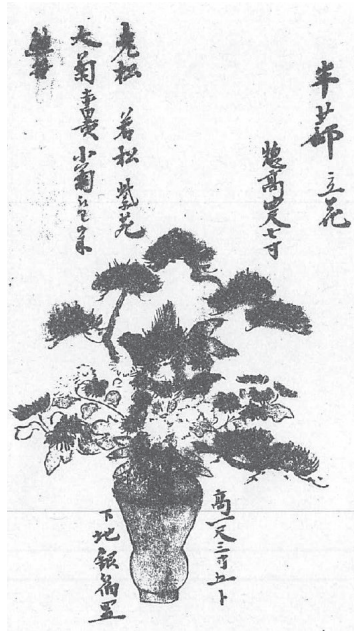 半蔀 立花
惣高四尺七寸
老松 若松 紫苑
大菊 小菊
高一尺三寸五ト
下地銀箔置